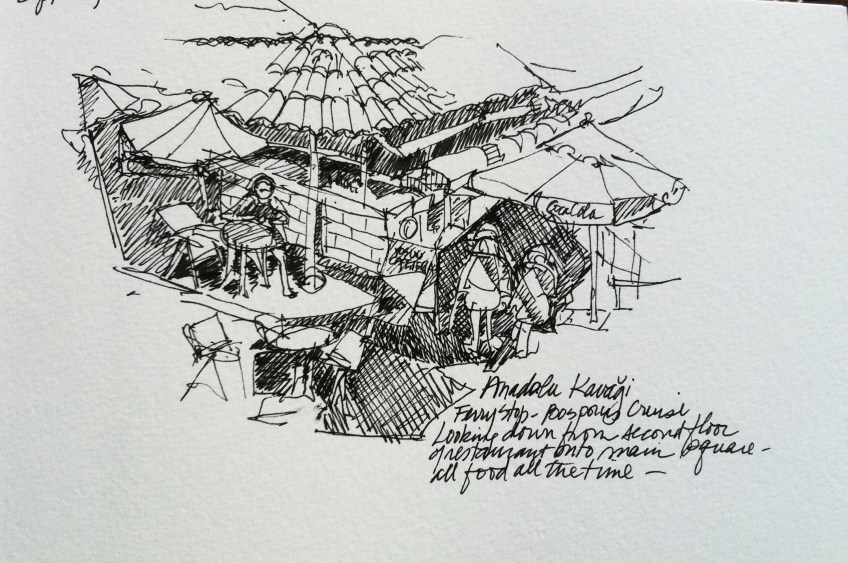 CocaCola
Anadolu Kavaği
Ferry Stop - Bosporus Cruise
Looking down from second floor
of restaurant onto main square -
all food all the time -